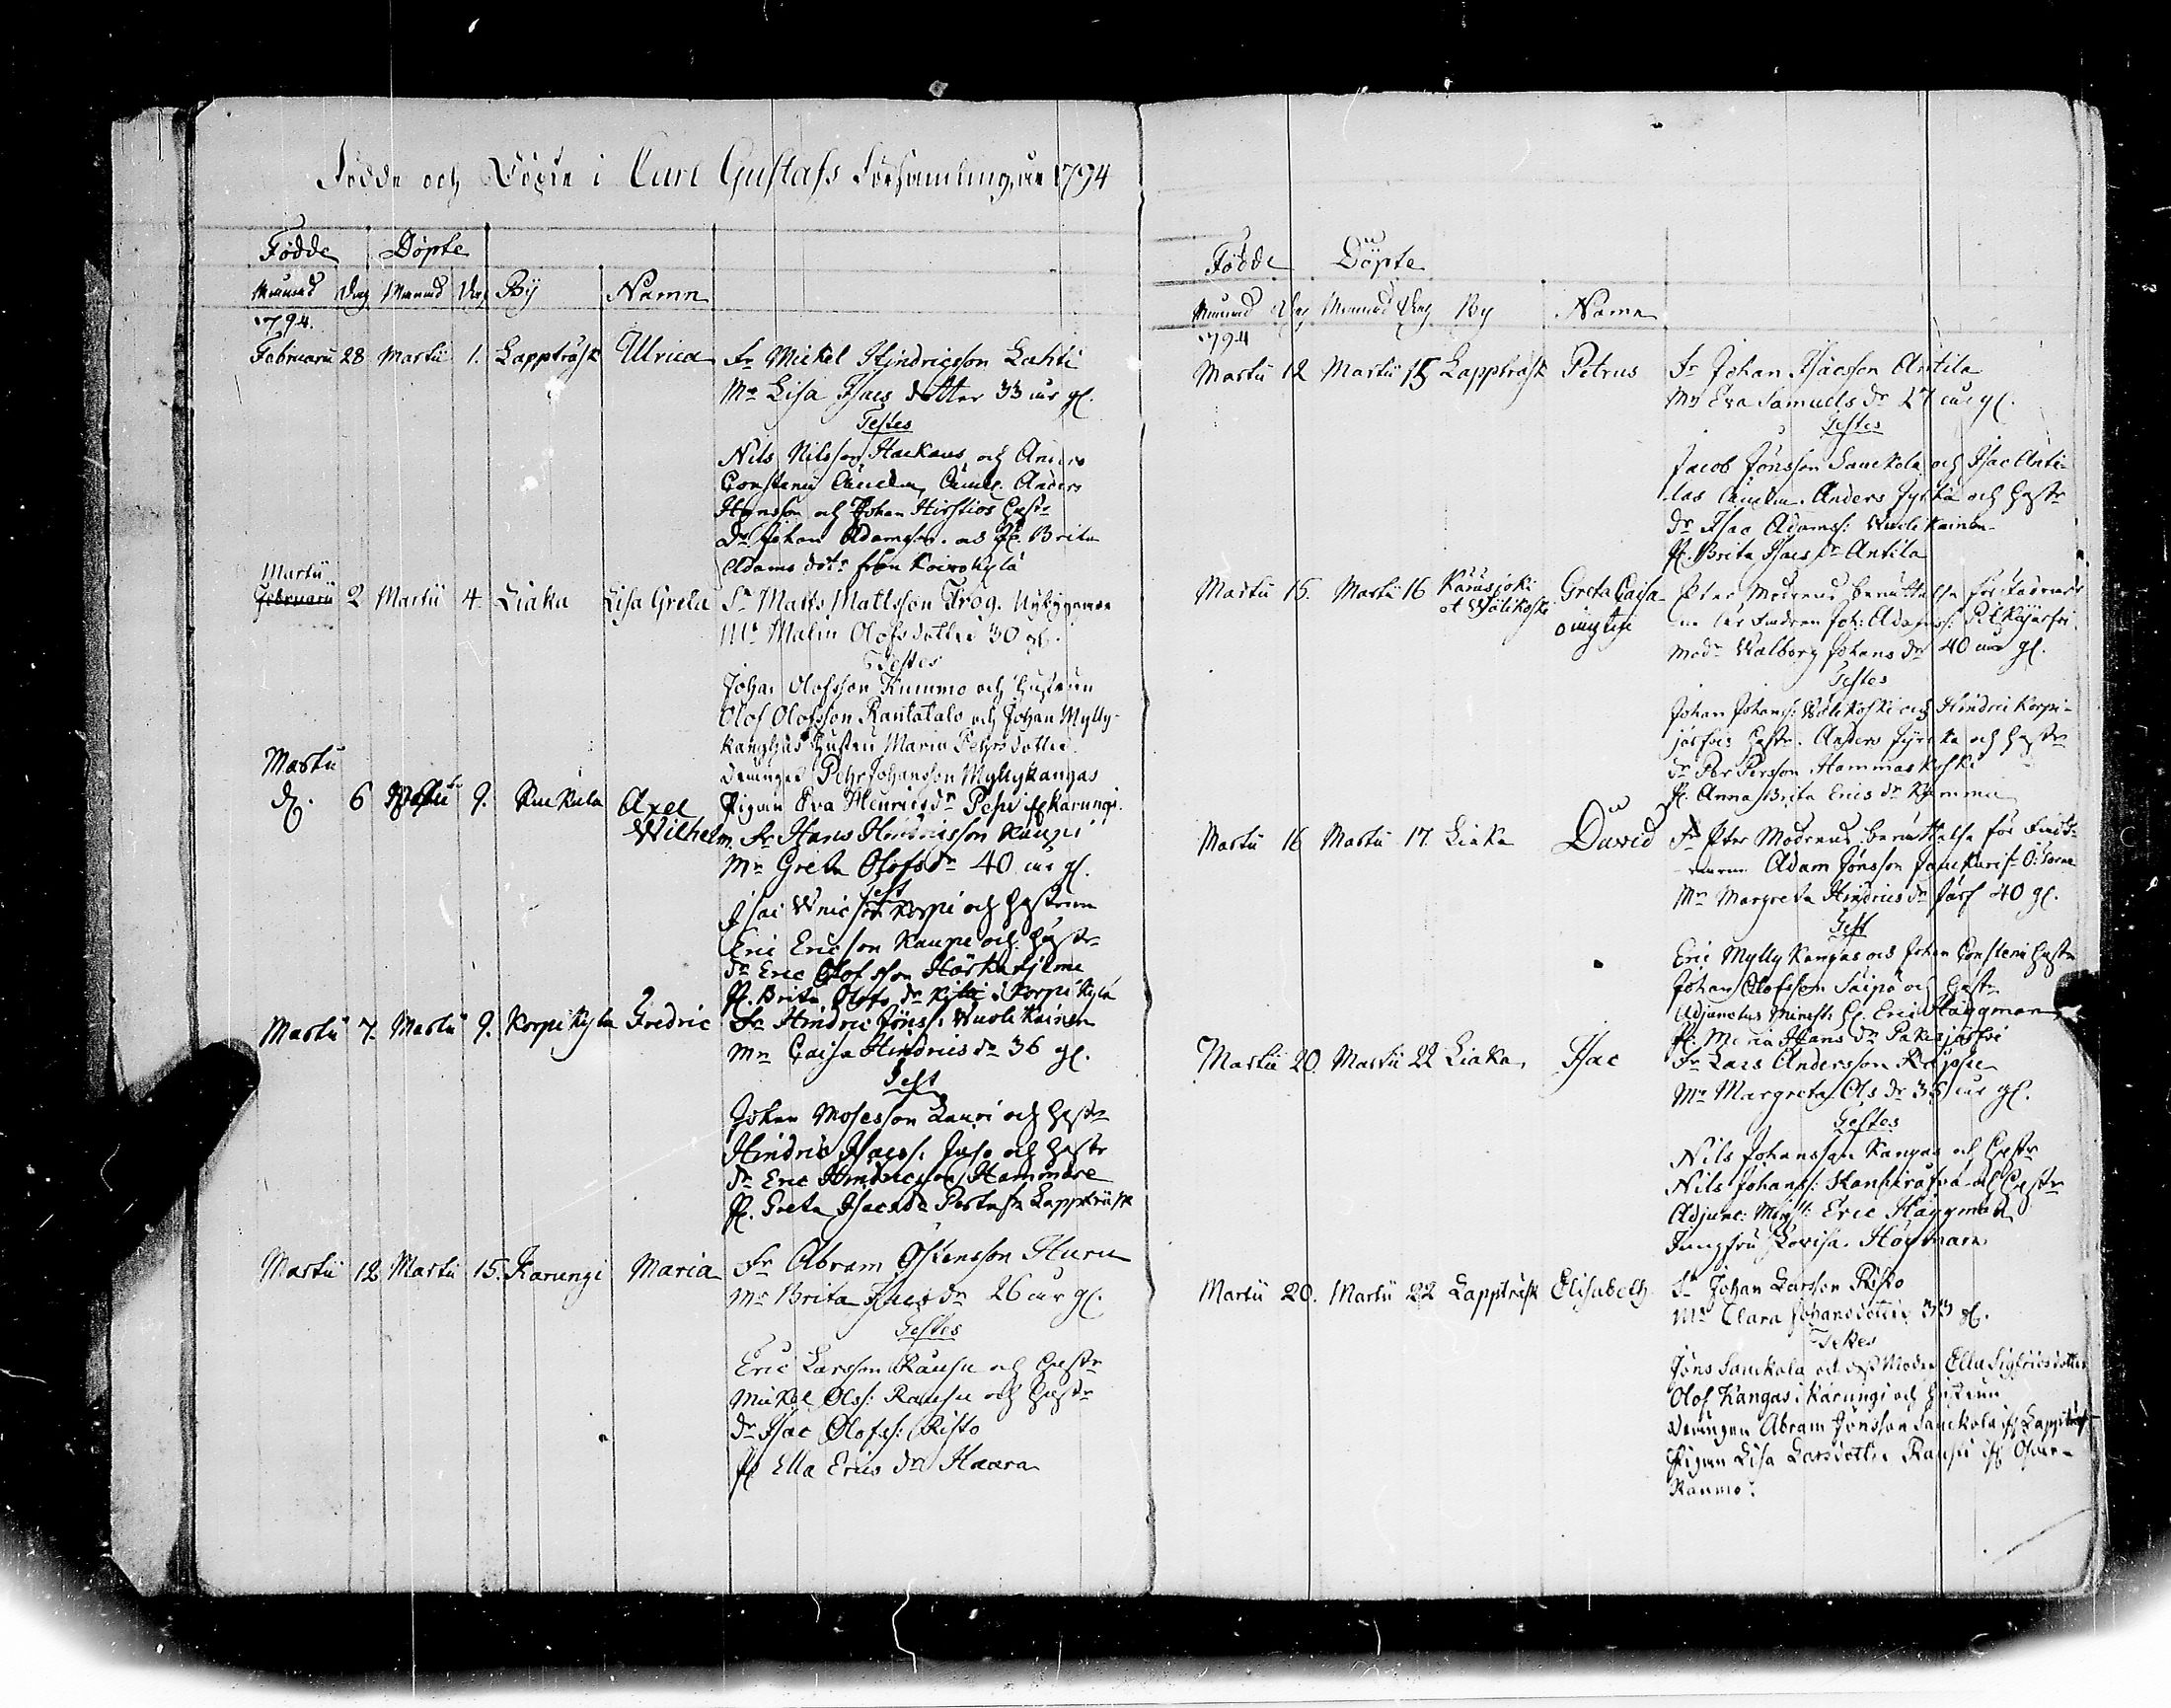 Födde och Döpte i Carl Gustafs Församling, åhr 1794
Födde Döpte
Månad Dag Månad Dag By Namn
1794.
Februarii 28 Martii 1. Lappträsk Ulrica Fr Mickel Hindricsson Lahti
Mr Lisa Isacs dotter 33 år gl.
Testes
Nils Nilsson Haekaus och Anders
Constenii
Hansson och Johan Hirstios Hustr
Dr Johan Adamsson Brita
Adams dotr från Koivokylä
Martii
Februarii 2 Martii 4. Liaka Lisa Greta Fr Matts Mattsson Frog. Nybyggare
Mr Malin Olofsdotter 30 gl.
Testes
Johan Olofsson Kummo och hustrun
Olof Olofsson Rantatalo och Johan Mylly-
kanghas hustru Maria Pehrsdotter
drängen Pehr Johansson Myllykangas
Pigan Eva Henricsdr Pepi Karungi.
Martii
d. 6 9. Kukula Axel
Wilhelm. Fr Hans Hindricsson Kaupi
Mr Greta Olofsdr 40 år gl.
Test
Isac Korpi och hustrun
Eric Ericsson Kaupe och hustr
Dr Eric Olofsson
P. Brita Olofs dr i Korpikylä
Martii 7. Martii 9. Korpikylä Fredric Fr Hindric Jönss: Wuolikainen
Mr Caisa Hindrics dr 36 gl.
Test
Johan Mosesson Lauri och hustr
Hindric Isacss: Juso och hustr
Dr Eric Hindricsson Hammare
P. Greta Isacsdr Lappträsk
Martii 12 Martii 15. Karungi Maria Fr Abram Östensson Huru
Mr Brita Isacs dr 26 år gl.
Testes
Eric Larsson Rausu och hustr
Mickel Olss: Rausu och hustr
Dr Isac Olofss: Risto
P. Ella Erics dr Haara
Födde Döpte
Månad Dag Månad Dag By Namn
1794
Martii 12 Martii 15 Lappträsk Petrus Fr Johan Isacsson Antila
Mr Eva Samuels dr 27 år gl.
Testes
Jacob Jönsson Sanckola och Isac Anti-
las Anders Jyrkkä och hustr
Dr Isac Adamss: Wuolikainen
P. Brita Isacs dr Antila
Martii 15. Martii 16 Karusjoki
et Wälikoski Greta Caisa
oäugta Efter Modrens berättelse för fadrens
Joh: Adamss: Pilkijärfvi
Modr Walborg Johans dr 40 år gl.
Testes
Johan Johanss: Wälikoski och Hindric Korpi-
järfvis hustr. Anders Jyrckä och hustr
Dr Per Persson Hammaskoski
P. Anna Brita Erics dr Kummu
Martii 16 Martii 17. Liaka David Fr Efter Modrens berättelse för
Adam Jönsson Ö: Torne
Mr Margreta Hindrics dr Järf 40 gl.
Test
Eric Myllykangas och Johan Constenii hustr
Johan Olofsson Saipa och hustr
Adjunctus Minist: H. Eric Häggman
P. Maria Hans dr Pakisjärfvi
Martii 20. Martii 22 Liaka Isac Fr Lars Andersson
Mr Margreta Ols dr 36 år gl.
Testes
Nils Johansson Kangas och hustr
Nils Johanss: och hustr
Adjunc: Minist: Eric Häggman
Jungfru Lovisa Högman
Martii 20. Martii 22 Lappträsk Elisabeth Fr Johan Larsson Risto
Mr Clara Johansdotter 33 gl.
Testes
Jöns Sanckola och dess Moder Ella Sigfridsdotter
Olof Kangas i Karungi och hustrun
drängen Abram Jönsson Sanckola if Lappträsk
Pigan Lisa Larsdotter Raupi if Öfver-
Raumo.